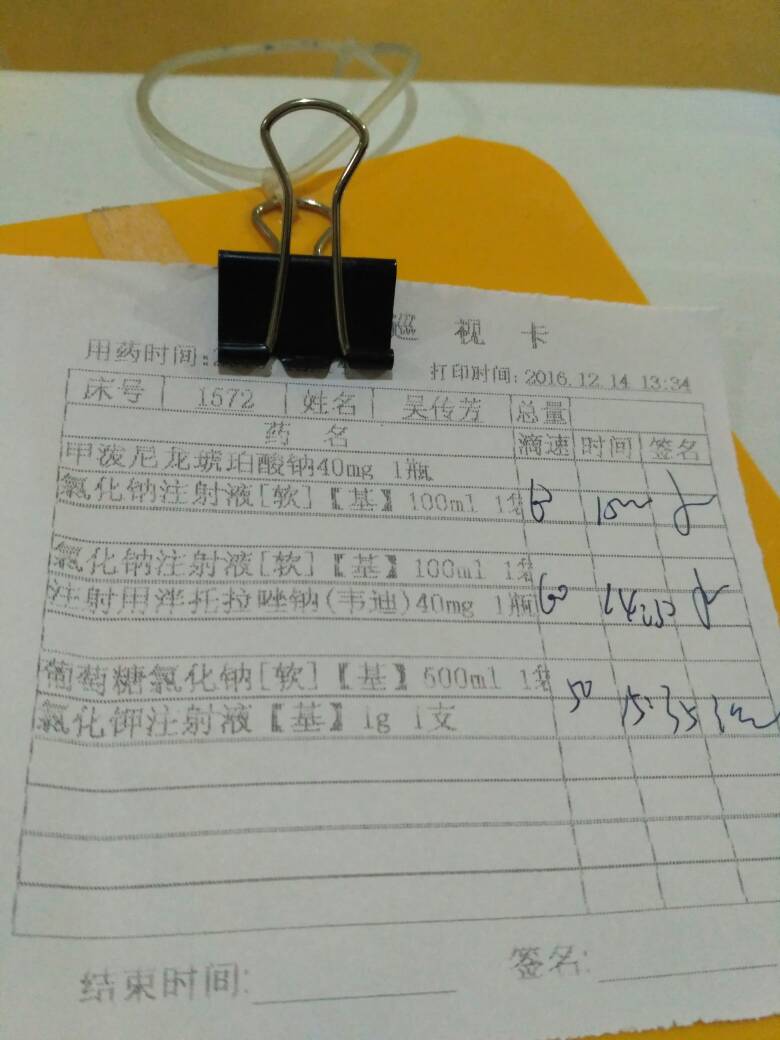 巡视卡
用药时间:2
打印时间: 2016.12.14 13:34
床号 1572 姓名 吴传芳 总量
药名 滴速 时间 签名
甲泼尼龙琥珀酸钠40mg 1瓶
氯化钠注射液[软]【基】100ml 1袋 60
氯化钠注射液[软]【基】100ml 1袋
注射用泮托拉唑钠(韦迪)40mg 1瓶 60
葡萄糖氯化钠[软]【基】500ml 1袋 50 15:35
氯化钾注射液【基】1g 1支
结束时间:
签名: